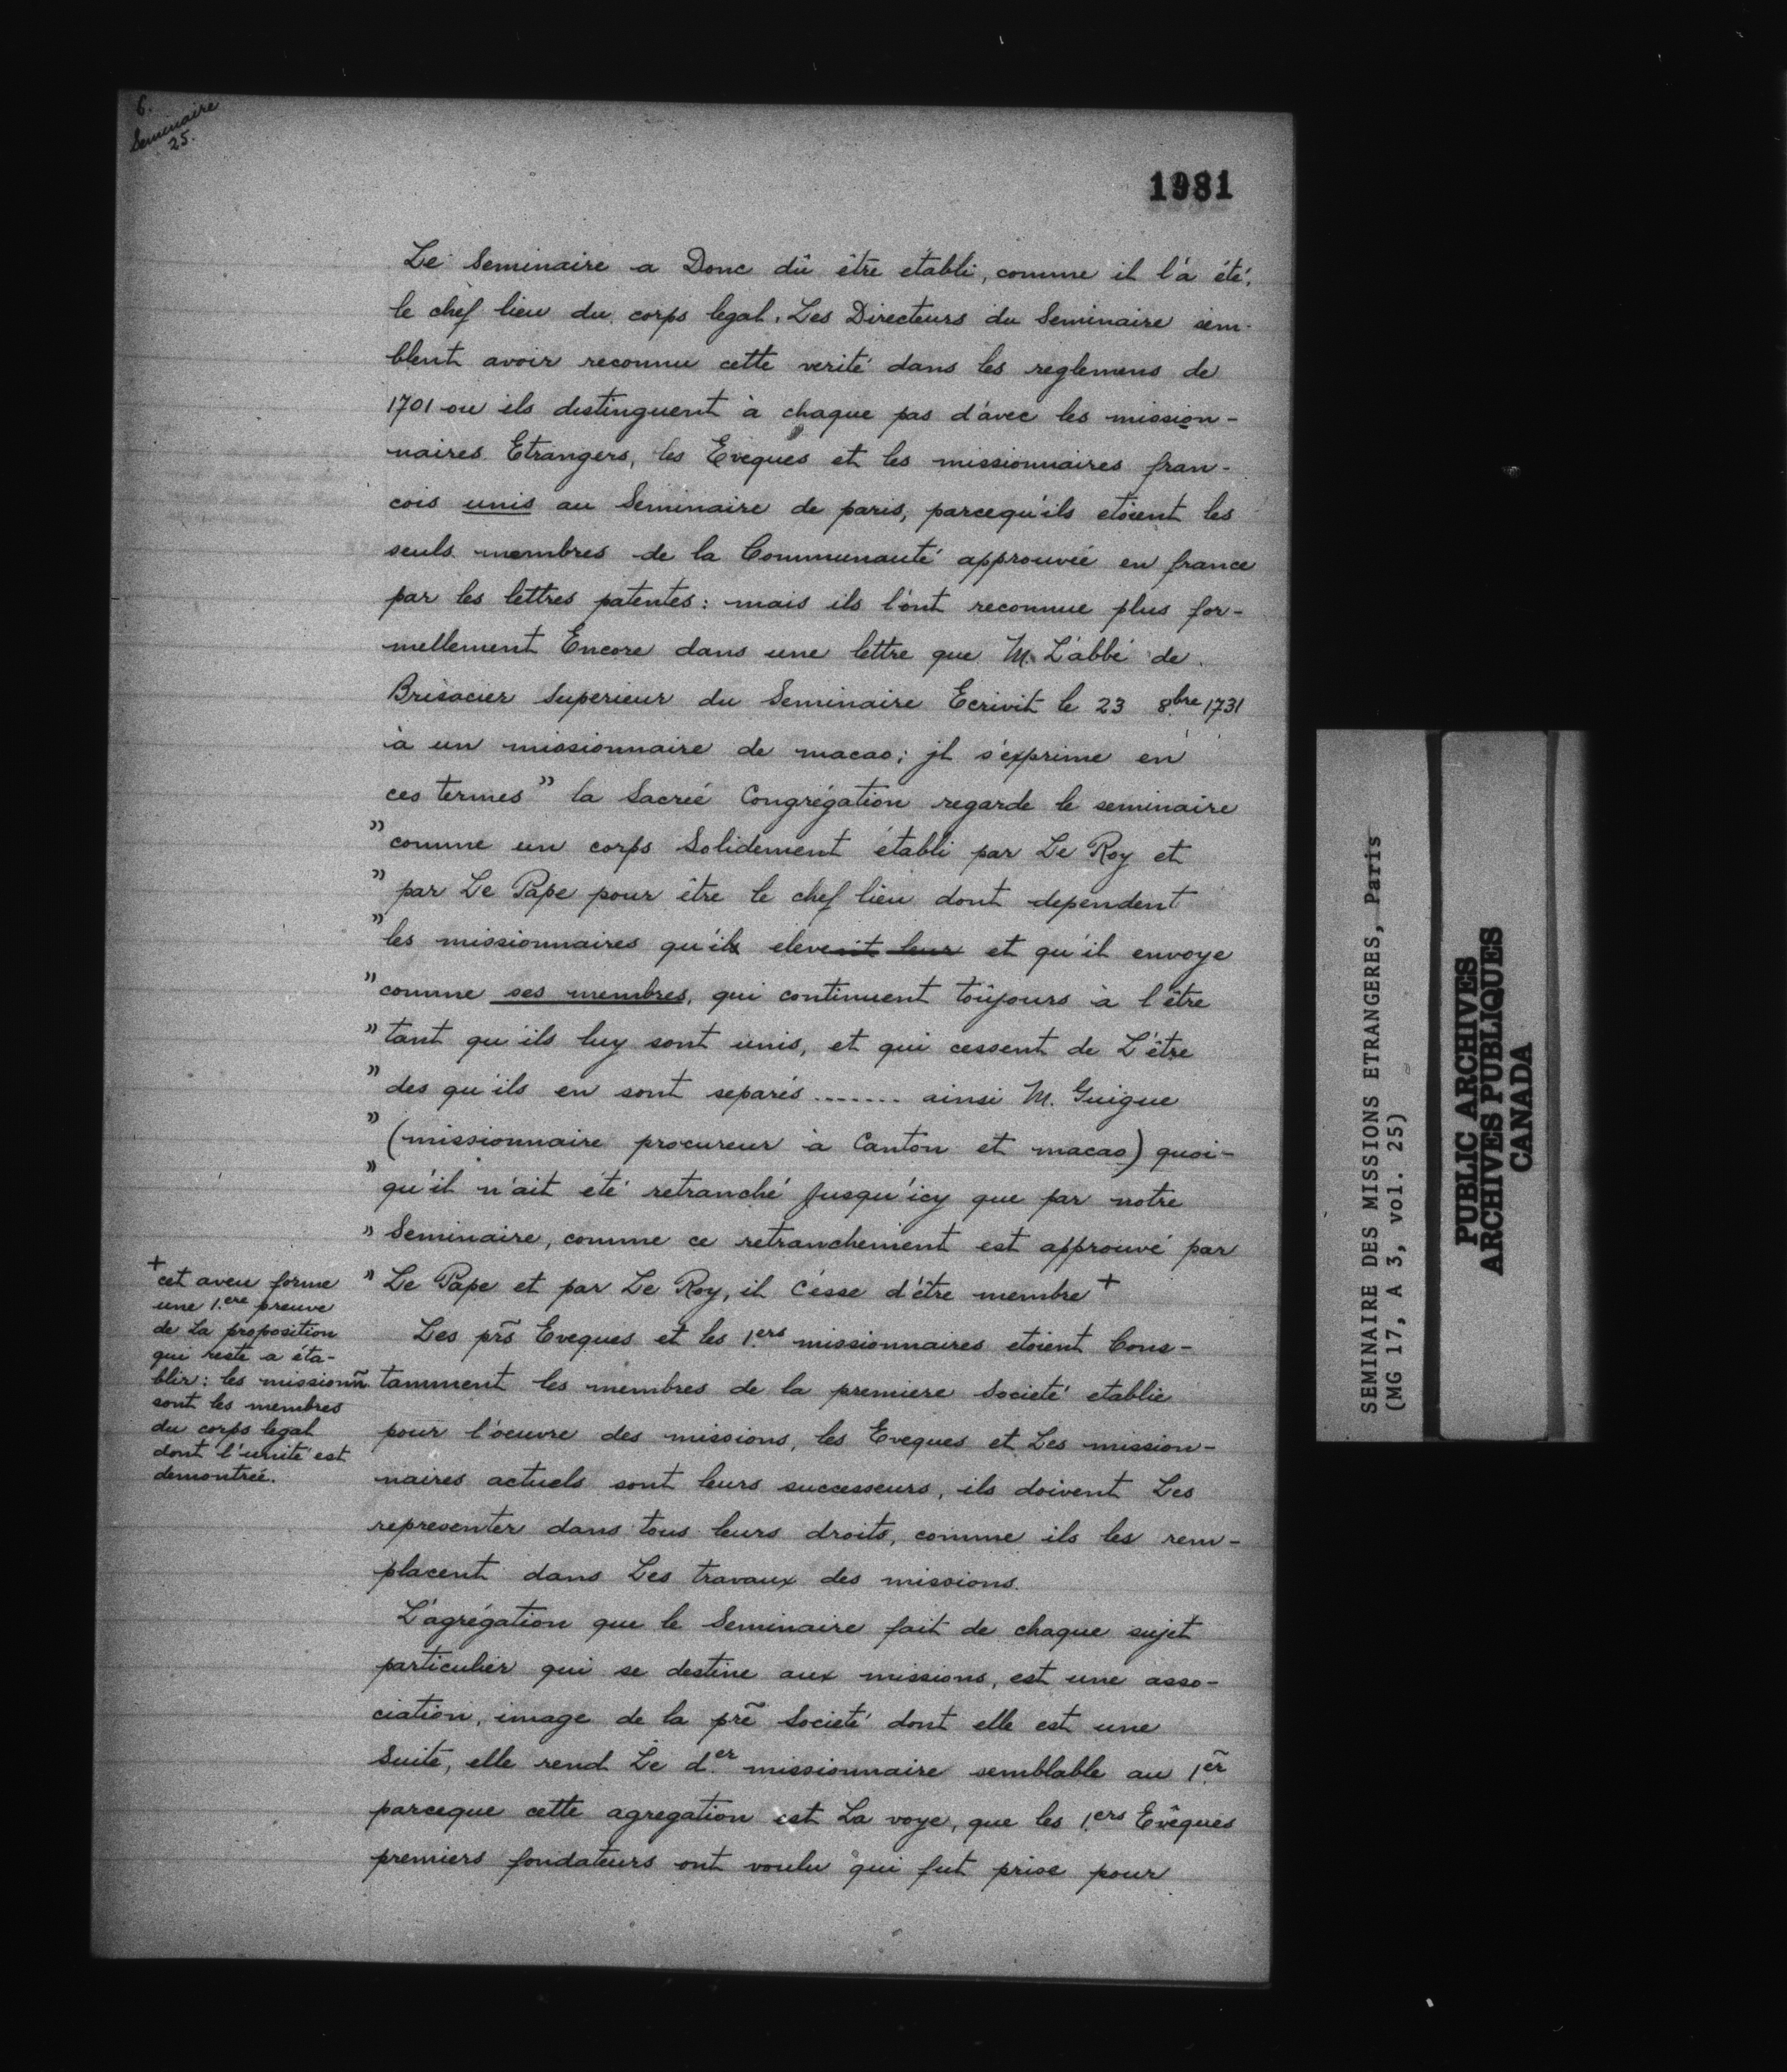 6.
Seminaire
25.
1981
Le Seminaire a Donc dû être etabli, comme il l'a été,
le chef lieu du corps legal. Les Directeurs du Seminaire sem-
blent avoir reconnu cette verité dans les reglemens de
1701 ou ils distinguent à chaque pas d'avec les mission-
naires Etrangers, les Eveques et les missionnaires fran-
cois unis au Seminaire de paris, parcequ'ils etoient les
seuls membres de la Communauté approuvée en france
par les lettres patentes: mais ils l'ont reconnue plus for-
mellement Encore dans une lettre que M. L'abbé de
Brisacier Superieur du Seminaire Ecrivit le 23 8bre 1731
à un missionnaire de macao; jl s'exprime en
ces termes " la Sacreé Congrégation regarde le seminaire
" comme un corps Solidement établi par Le Roy et
" par Le Pape pour être le chef lieu dont dependent
" les missionnaires qu'ils elevent leur et qu'il envoye
" comme ses membres, qui continuent toûjours à l'être
" tant qu'ils luy sont unis, et qui cessent de L'être
" des qu'ils en sont separés ....... ainsi M. Guigue
" (missionnaire procureur à Canton et macao) quoi-
" qu'il n'ait été retranché jusqu'icy que par notre
" Seminaire, comme ce retranchement est approuvé par
" Le Pape et par Le Roy, il cèsse d'être membre +
+ cet aveu forme
une 1.ere preuve
de La proposition
qui reste a éta-
blir: les missionñ
sont les membres
du corps legal
dont l'unité est
demontreé.
Les pr̃s Eveques et les 1.ers missionnaires etoient Cons-
tamment les membres de la premiere Societé etablie
pour l'oeuvre des missions, les Eveques et Les mission-
naires actuels sont leurs successeurs, ils doivent Les
representer dans tous leurs droits, comme ils les rem-
placent dans Les travaux des missions.
L'agrégation que le Seminaire fait de chaque sujet
particulier qui se destine aux missions, est une asso-
ciation, image de la pr̃e Societé dont elle est une
Suite, elle rend Le d.er missionnaire semblable au 1.er̃
parceque cette agregation est La voye, que les 1.ers Evêques
premiers fondateurs ont voulu qui fut prise pour
SEMINAIRE DES MISSIONS ETRANGERES, Paris
(MG 17, A 3, vol. 25)
PUBLIC ARCHIVES
ARCHIVES PUBLIQUES
CANADA